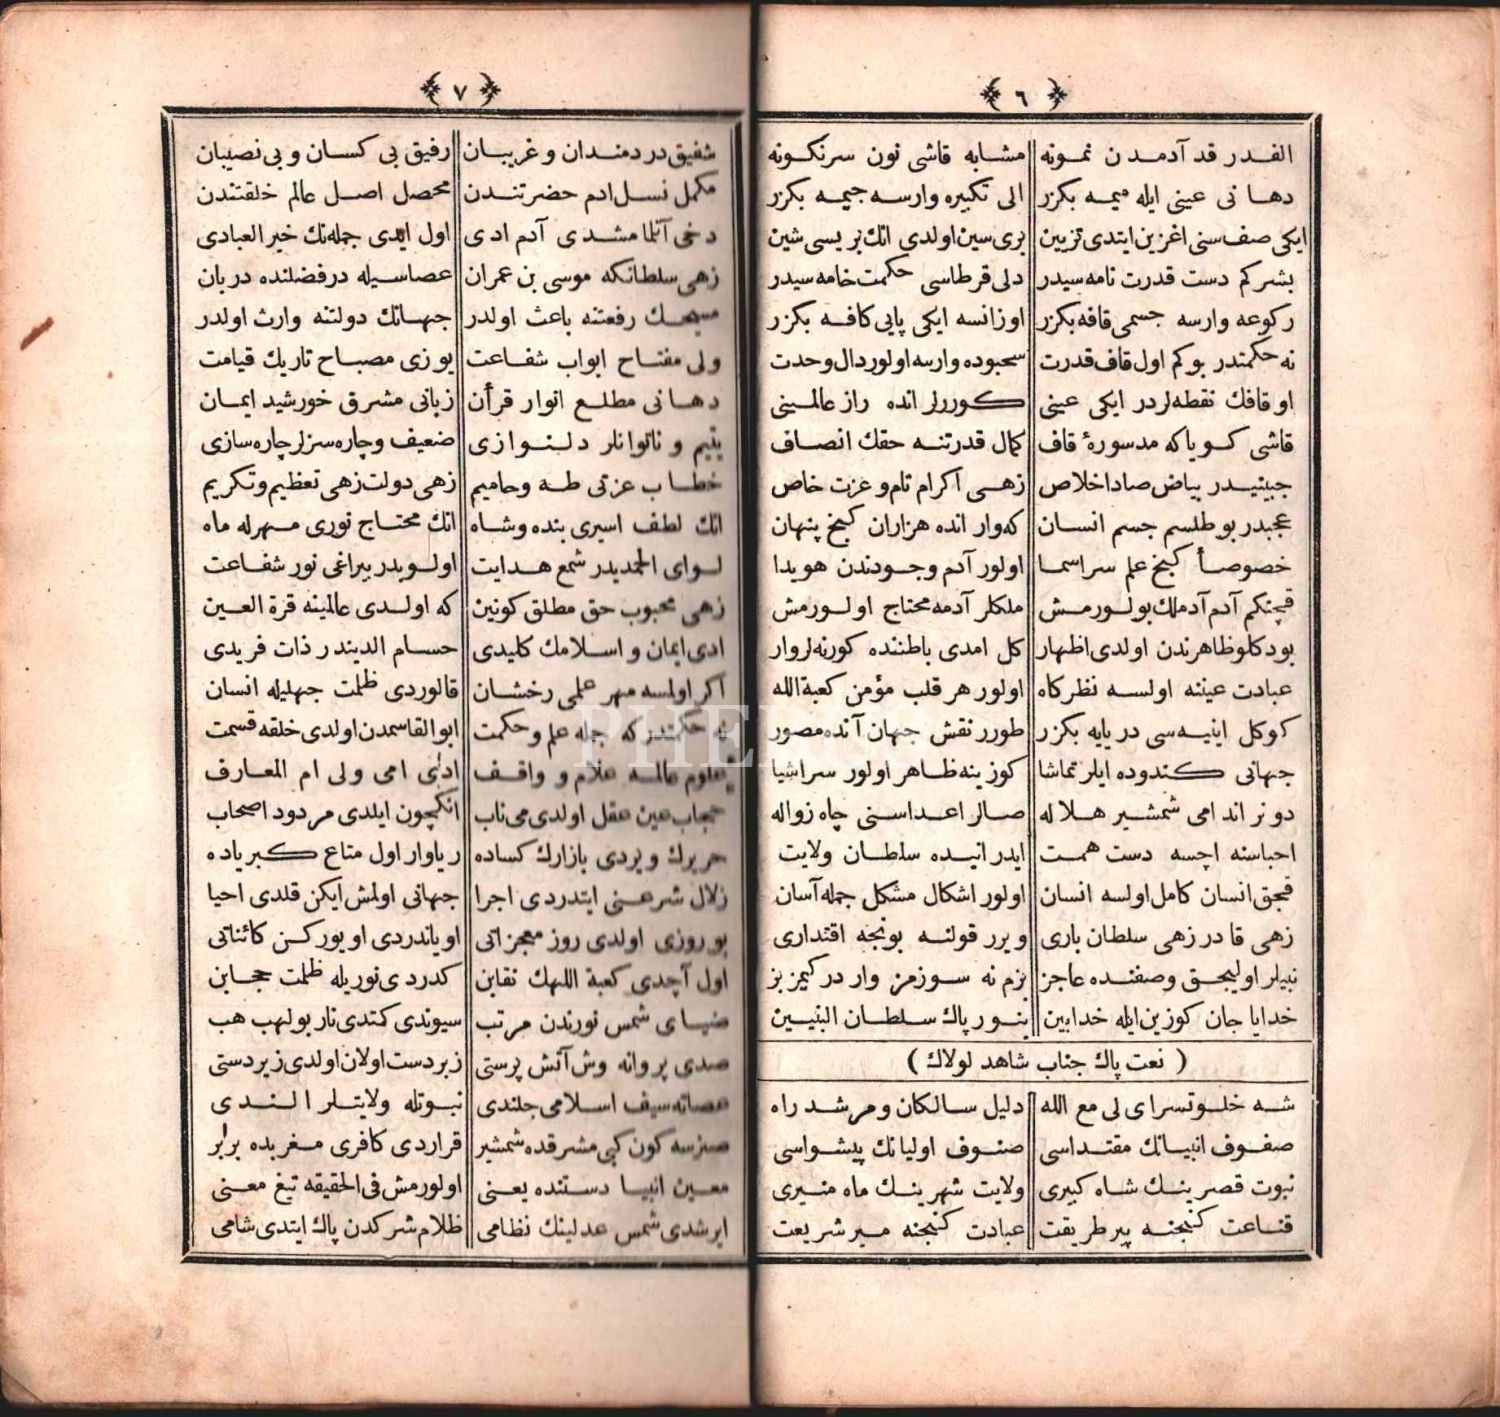 ٦
الفدر قد آدمدن نمونه مشابه قاشی نون سرنکونه
دهانی عینی ایله میمه بکزر الی تکبیره وارسه جیمه بکزر
ایکی صف سنی اغزین ایتدی تزیین بری سین اولدی انك بریسی شین
بشرکم دست قدرت نامه سیدر دلی قرطاسی حکمت خامه سیدر
رکوعه وارسه جسمی قافه بکزر اوزانسه ایکی پایی کافه بکزر
نه حکمتدر بوکم اول قاف قدرت سجوده وارسه اولور دال وحدت
او قافك نقطه لردر ایکی عینی کوررلر انده راز عالمینی
قاشی کویاکه مدسورهٔ قاف کمال قدرتنه حقك انصاف
جبینیدر بیاض صاد اخلاص زهی اکرام تام و عزت خاص
عجبدر بو طلسم جسم انسان که وار انده هزاران کنج پنهان
خصوصاً کنج علم سر اسما اولور آدم وجودندن هویدا
قچنکم آدم آدملك بولورمش ملکلر آدمه محتاج اولورمش
بودکلو ظاهرندن اولدی اظهار کل امدی باطننده کورنه لر وار
عبادت عیننه اولسه نظرکاه اولور هر قلب مؤمن کعبة الله
کوکل اینیه سی دریایه بکزر طورر نقش جهان آنده مصور
جهانی کندوده ایلر تماشا کوزینه ظاهر اولور سر اشیا
دونر اندامی شمشیر هلاله صالر اعداسنی چاه زواله
احباسنه اچسه دست همت ایدر انیده سلطان ولایت
قچق انسان کامل اولسه انسان اولور اشکال مشکل جمله آسان
زهی قادر زهی سلطان باری ویرر قولنه بونجه اقتداری
نبیلر اولیجق وصفنده عاجز بزم نه سوزمز وار در کیمز بز
خدایا جان کوزین ایله خدابین بنور پاك سلطان النبیین
( نعت پاك جناب شاهد لولاك )
شه خلوتسرای لی مع الله دلیل سالکان و مرشد راه
صفوف انبیانك مقتداسی صنوف اولیانك پیشواسی
نبوت قصرینك شاه کبیری ولایت شهرینك ماه منیری
قناعت کنجنه پیر طریقت عبادت کنجنه میر شریعت
٧
شفیق دردمندان و غریبان رفیق بی کسان و بی نصیبان
مکمل نسل ادم حضرتندن محصل اصل عالم خلقتندن
دخی آنلمامشدی آدم ادی اول ایدی جمله نك خیر العبادی
زهی سلطانکه موسی بن عمران عصاسیله در فضلنده دربان
مسیحك رفعتنه باعث اولدر جهانك دولتنه وارث اولدر
ولی مفتاح ابواب شفاعت یوزی مصباح تاریك قیامت
دهانی مطلع انوار قرأن زبانی مشرق خورشید ایمان
یتیم و ناتوانلر دلنوازی ضعیف و چاره سزلر چاره سازی
خطاب عزتی طه و حامیم زهی دولت زهی تعظیم و تکریم
انك لطف اسیری بنده و شاه انك محتاج نوری مهرله ماه
لوای الحمدیدر شمع هدایت اولویدر بیراغی نور شفاعت
زهی محبوب حق مطلق کونین که اولدی عالمینه قرة العین
ادی ایمان و اسلامك کلیدی حسام الدیندر ذات فریدی
اکر اولمسه مهر علمی رخشان قالوردی ظلمت جهلیله انسان
نه حکمتدر که جمله علم و حکمت ابو القاسمدن اولدی خلقه قسمت
علوم عالمه علام و واقف ادلی امی ولی ام المعارف
حجاب عین عقل اولدی می ناب انکچون ایلدی مردود اصحاب
حریرك ویردی بازارك کساده ریاوار اول متاع کبریاده
زلال شرعنی ایتدردی اجرا جهانی اولمش ایکن قلدی احیا
بو روزی اولدی روز معجزاتی اویاندردی اویورکن کائناتی
اول آچدی کعبة اللهك نقابن کدردی نوریله ظلمت حجابن
ضیای شمس نورندن مرتب سیوندی کتدی نار بولهب هب
صدی پروانه وش آتش پرستی زبردست اولان اولدی زیردستی
عصاته سیف اسلامی جلندی نبوتله ولایتلر الندی
صنزسه کون کبی مشرقده شمشیر قراردی کافری مغربده برابر
معین انبیا دستنده یعنی اولورمش فی الحقیقه تیغ معنی
ایرشدی شمس عدلینك نظامی ظلام شرکدن پاك ایتدی شامی